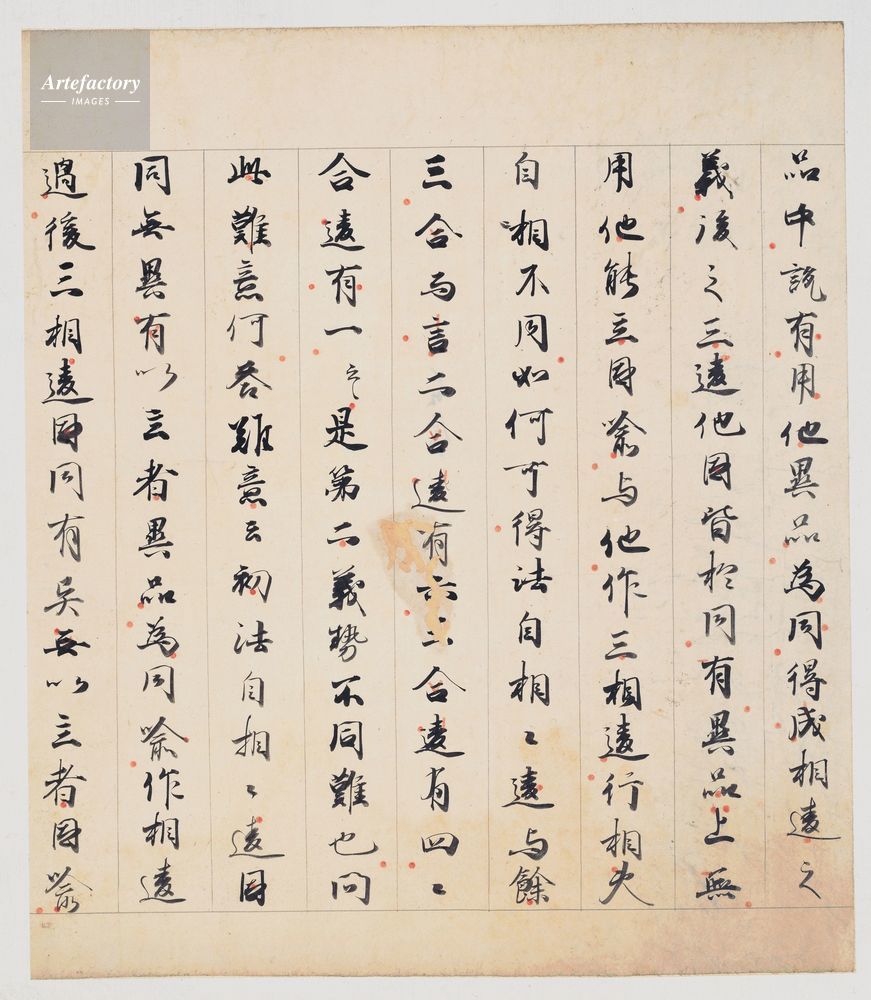 Artefactory
IMAGES
品中説有用他異品為同得成相違之
義後之三違他因皆於同有異品上無
用他能立因喩与他作三相違行相
自相不同如何可得法自相〻違与餘
三合為言二合違有六三合違有四〻
合違有一云〻是第二義勢不同難也問
此難意何答難意云初法自相〻違因
同無異有以言者異品為同喩作相違
過後三相違因同有異無以言者因喩